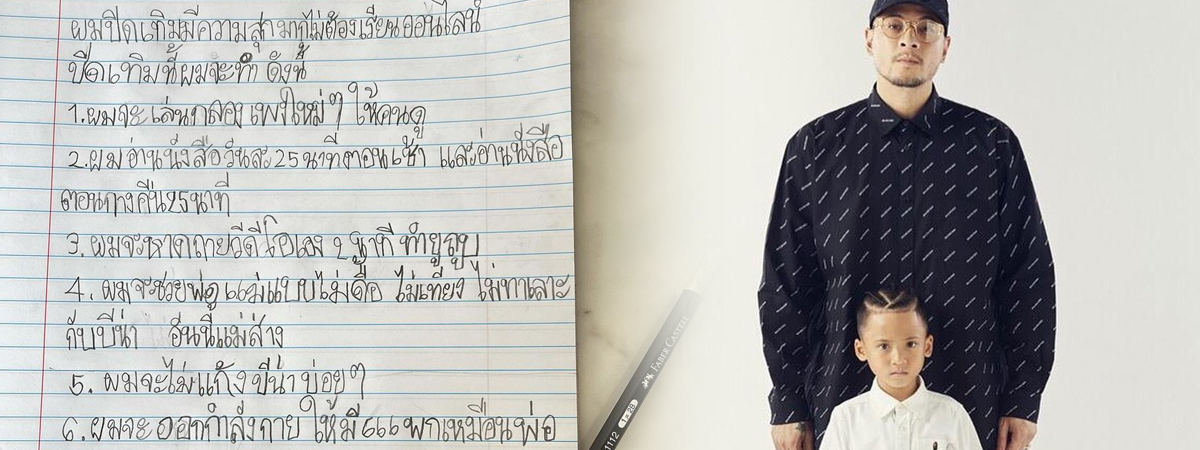 ผมปิดเทิมมีความสุกมากไม่ต้องเรียนออนไลน์
ปีดเทิมนี้ผมจะทำ ดังนี้
1.ผมจะเล่นกลองเพงใหม่ๆ ให้คนดู
2.ผมอ่านนั่งสือวันละ25นาที่ตอนเช้า และอ่านนั่งสือ
ตอนกางคืน25นาที
3.ผมจะหาดถายวีดีโอเอง
ทำยูถูบ
4. ผมจะช่วย
แม่แบบไม่ดื้อ ไม่เทียง ไม่ทาเลาะ
กับปีน่า อันนี้แม่ส้าง
5. ผมจะไม่แก้ง ปีน่า บ่อยๆ
6.ผมจะออกกำลังกาย ให้มี 666 พกเหมือนพ่อ
FABER CASTELL
1112
1=2B